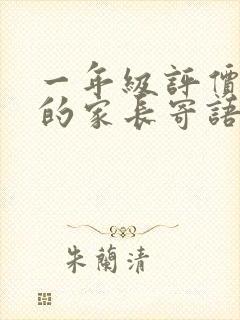 一年級評價
的家長寄語
朱蘭清